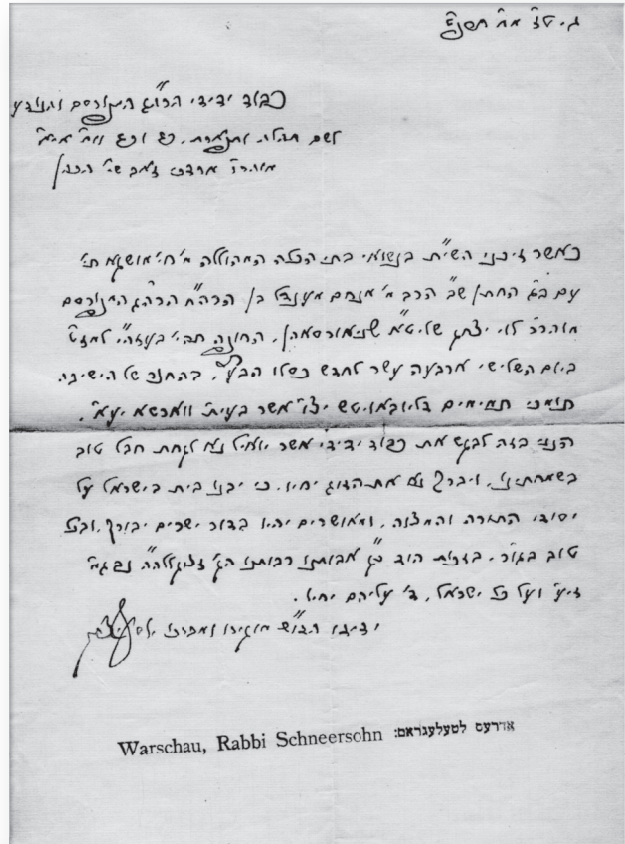 ג, ט"ז מ"ח תרפ"ט
כבוד ידידי הרה"ג המפורסם והנודע
לשם תהלה ותפארת, וו"ח אי"א
מוהר"ר מרדכי זאב שי' הכהן
כאשר זיכני השי"ת בנשואי בתי הכלה המהוללה מ' חי' מושקא תי'
עם ב"ג החתן שב"ב הרב מ' מנחם מענדל בן הרה"ח הרה"ג המפורסם
מוהר"ר לוי יצחק שליט"א שניאורסאהן, החופה תהי' בעזה"י למזט"ו
ביום השלישי ארבעה עשר לחדש כסלו הבע"ל, בהחצר של הישיבה
תומכי תמימים דליובאוויטש יצ"ו אשר בעי"ת ווארשא יע"א.
הנני בזה לבקש את כבוד ידידי אשר יואיל נא לקחת חבל טוב
בשמחתינו, ויברך נא את הזוג יחיו, כי יבנו בית בישראל על
יסודי התורה והמצוה, ומאושרים יהיו בדור ישרים יבורך, ובכל
טוב בגו"ר, בזכות הוד כ"ק אבותנו רבותנו הק' זצוקללה"ה נבג"מ
זי"ע ועל כל ישראל, ד' עליהם יחיו.
ידידו הדו"ש מוקירו ומכבדו יוסף יצחק
Warschau, Rabbi Schneersohn אדרעס לטעלעגראם: